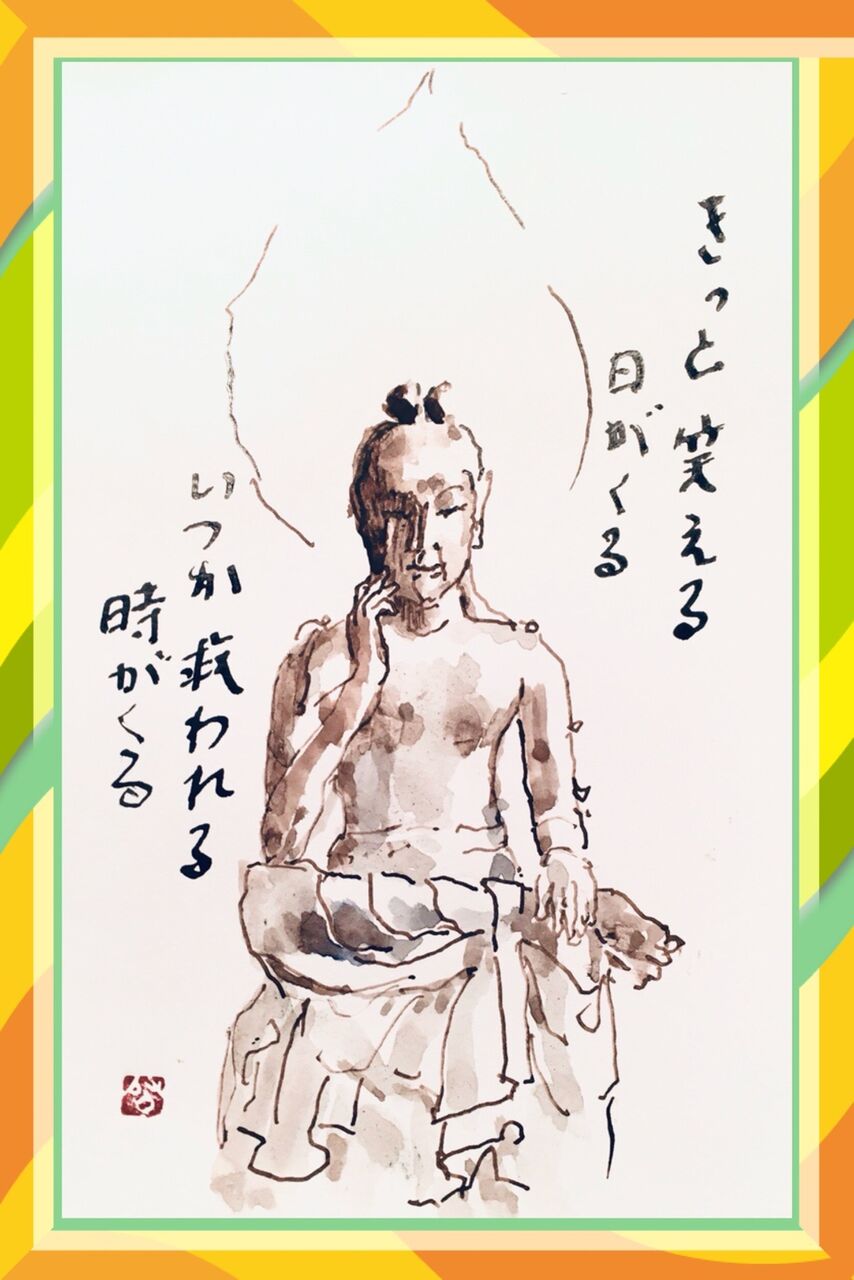 きっと笑える
日がくる
いつか救われる
時がくる